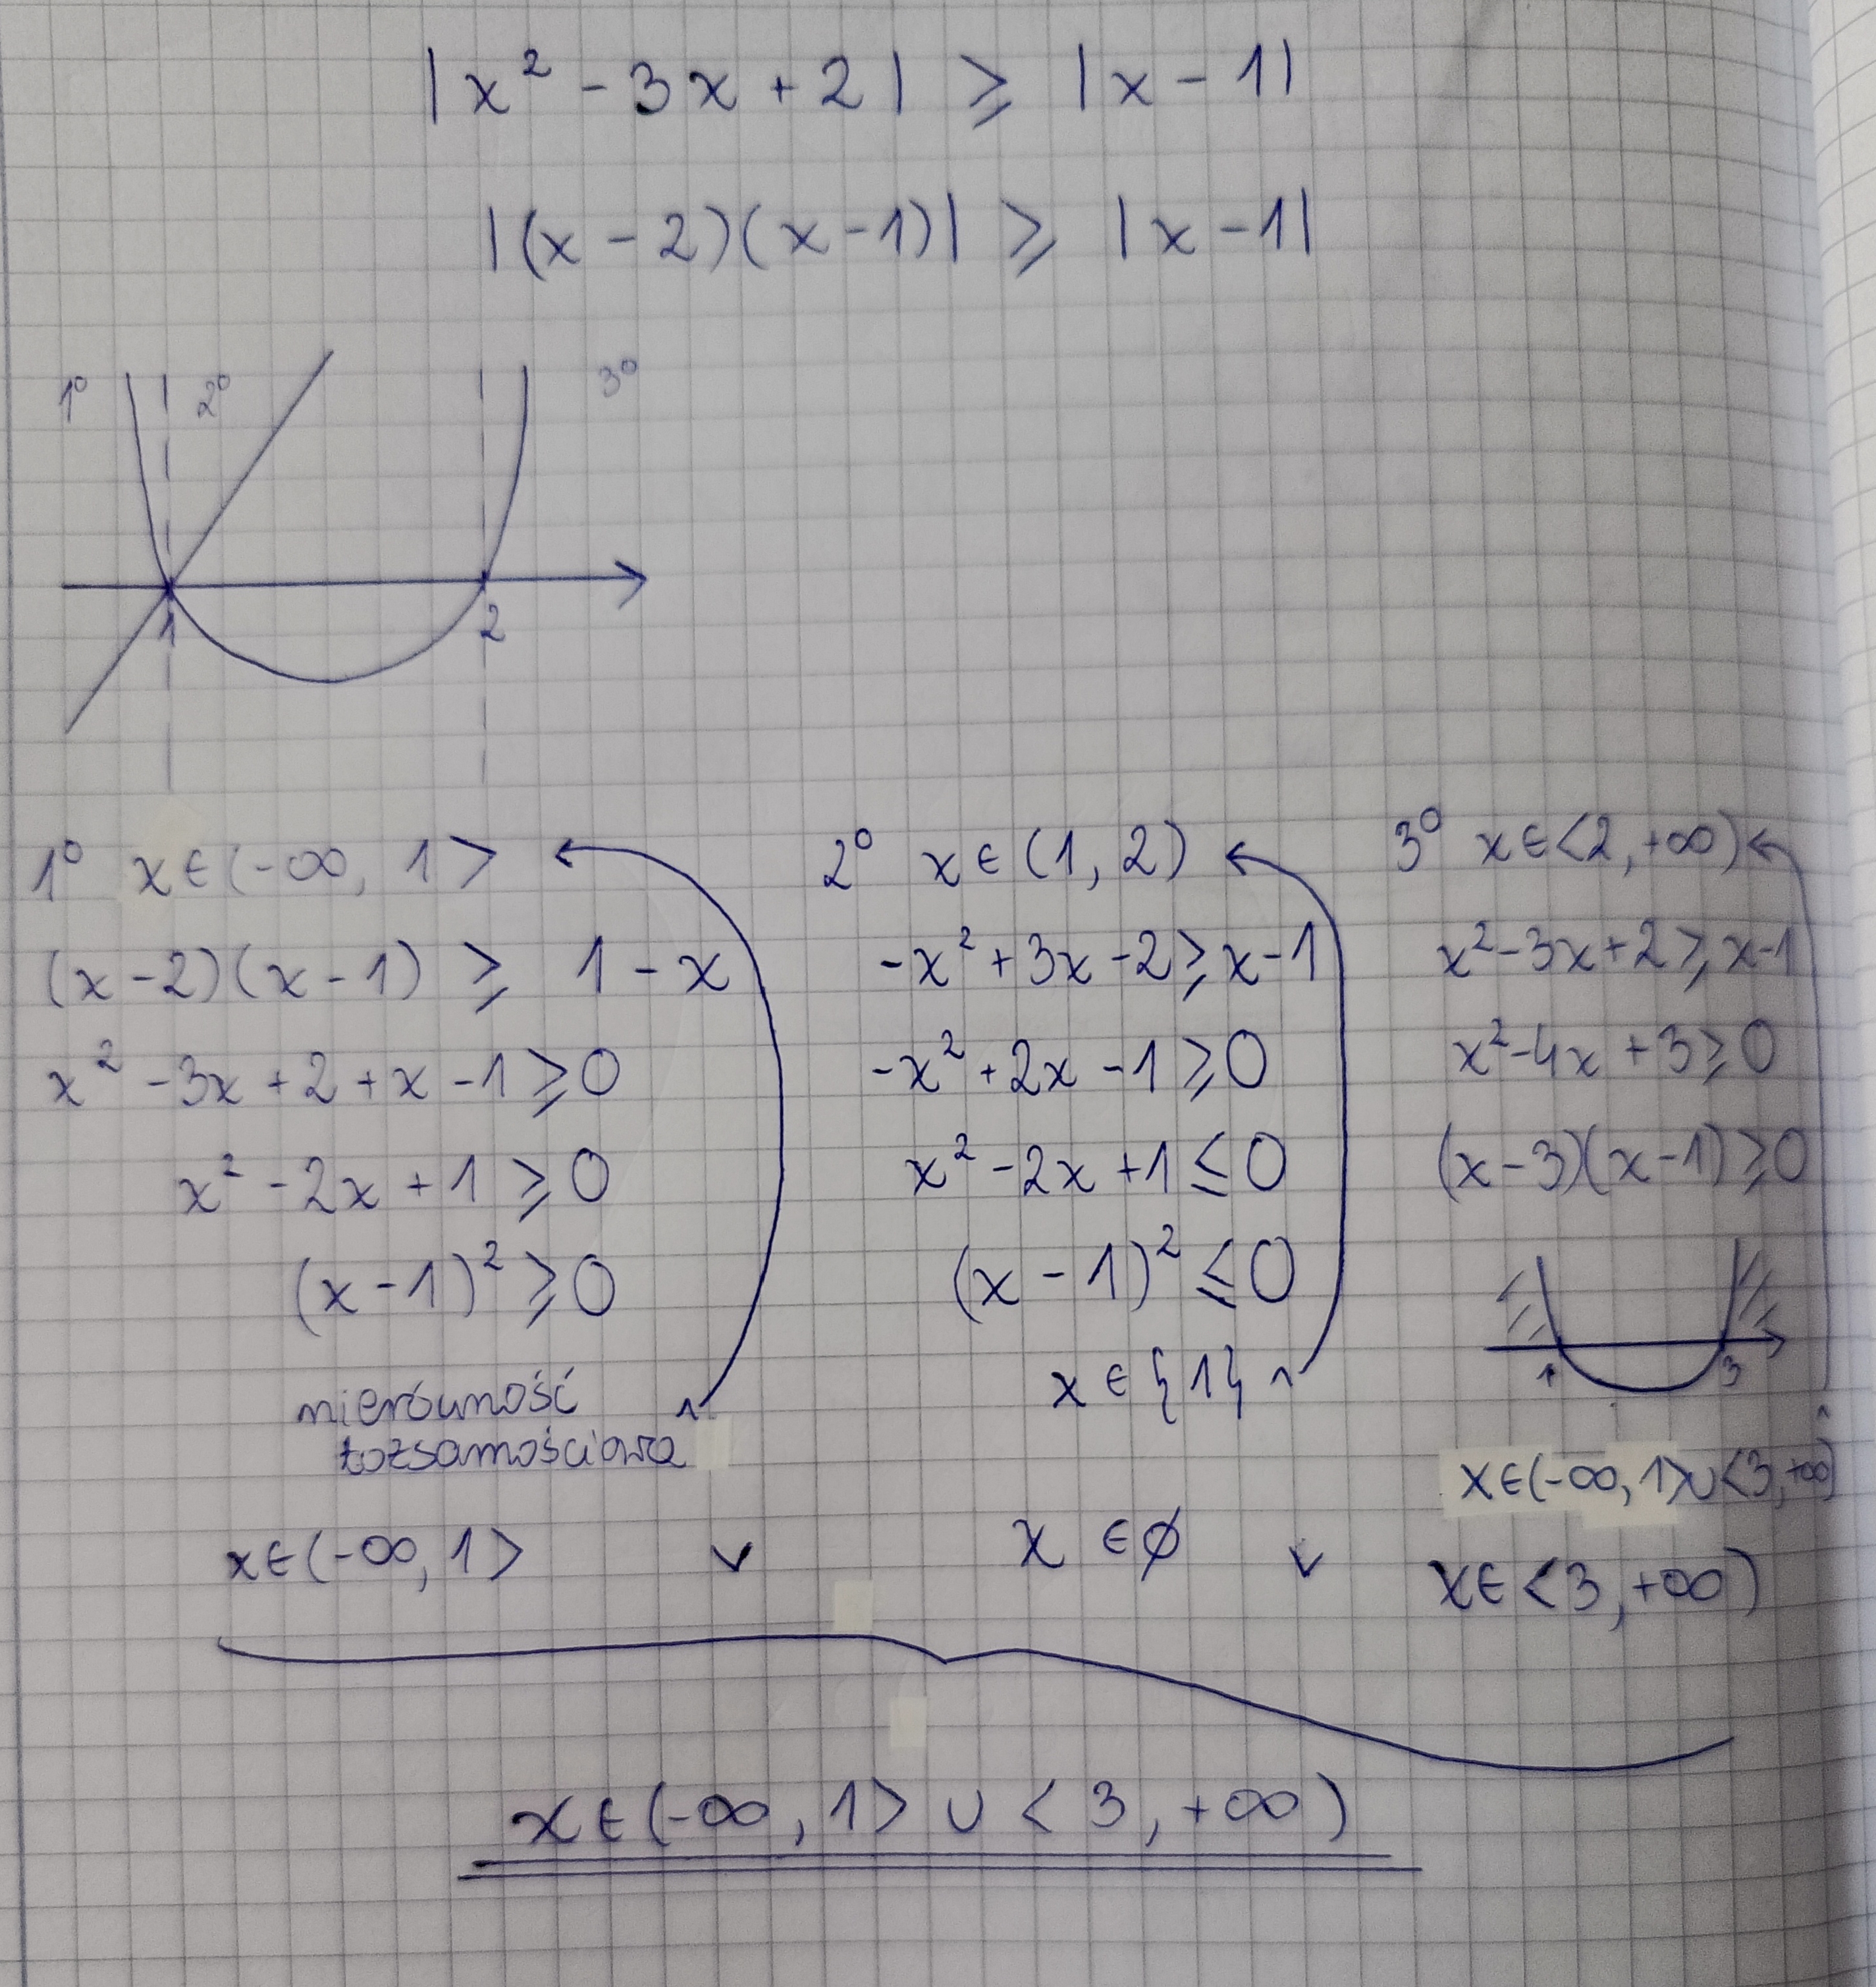 |x² - 3x + 2| ⩾ |x - 1|
|(x - 2)(x - 1)| ⩾ |x - 1|
1° 2° 3°
1 2
1° x∈(-∞, 1>
(x - 2)(x - 1) ⩾ 1 - x
x² - 3x + 2 + x - 1 ⩾ 0
x² - 2x + 1 ⩾ 0
(x - 1)² ⩾ 0
nierówność
tożsamościowa
x∈(-∞, 1>
2° x∈(1, 2)
-x² + 3x - 2 ⩾ x - 1
-x² + 2x - 1 ⩾ 0
x² - 2x + 1 ≤ 0
(x - 1)² ≤ 0
x ∈ {1}
∨ x ∈ ∅ ∨
3° x∈<2, +∞)
x² - 3x + 2 ⩾ x - 1
x² - 4x + 3 ⩾ 0
(x - 3)(x - 1) ⩾ 0
1 3
x∈(-∞, 1>∪<3, +∞)
x∈<3, +∞)
x∈(-∞, 1> ∪ <3, +∞)